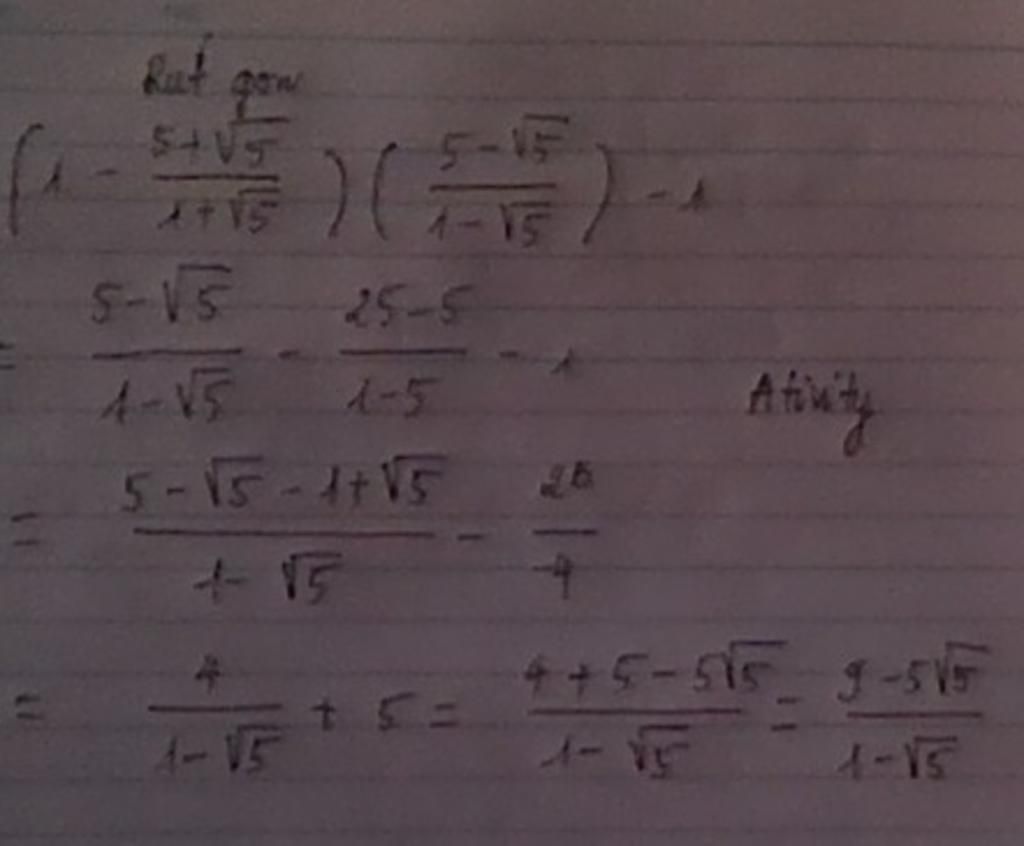 Rút gọn
(1 - \frac{5+√5}{1+√5})(\frac{5-√5}{1-√5}) - 1
= \frac{5-√5}{1-√5} - \frac{25-5}{1-5} - 1
Ativity
= \frac{5-√5-1+√5}{1-√5} - \frac{20}{-4}
= \frac{4}{1-√5} + 5 = \frac{4+5-5√5}{1-√5} = \frac{9-5√5}{1-√5}